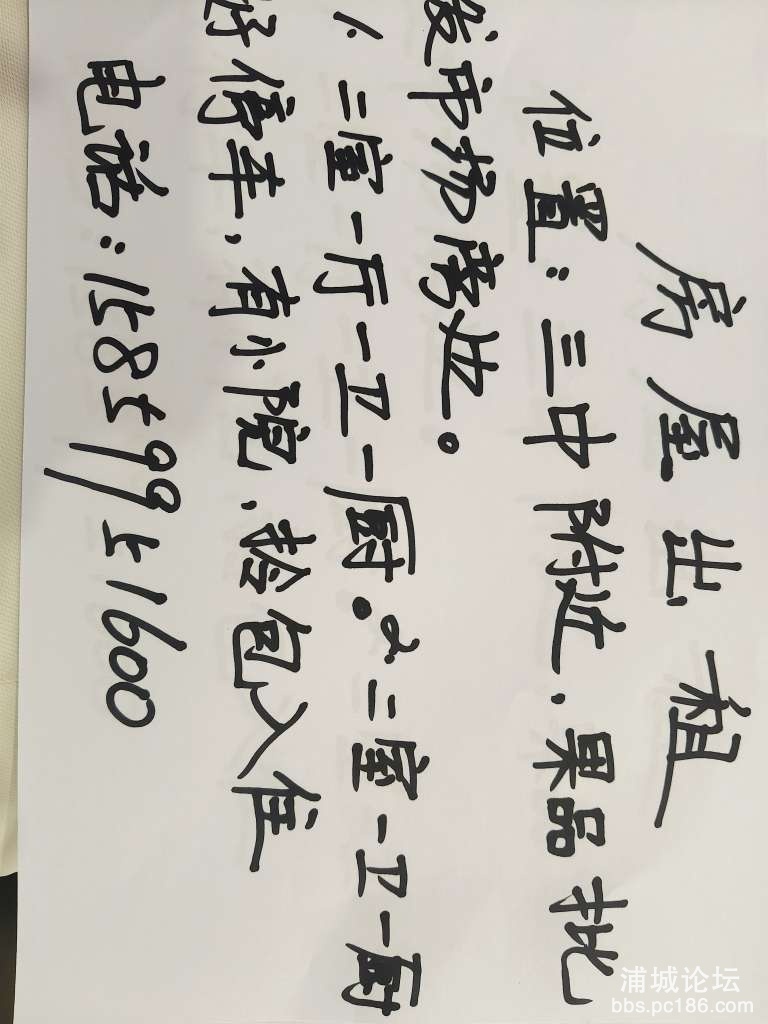 房屋出租
位置:三中附近,果品批
发市场旁边。
1.二室一厅一卫一厨。2.二室一卫一厨
好停车,有小院,拎包入住
电话:15859951600
浦城论坛
bbs.pc186.com